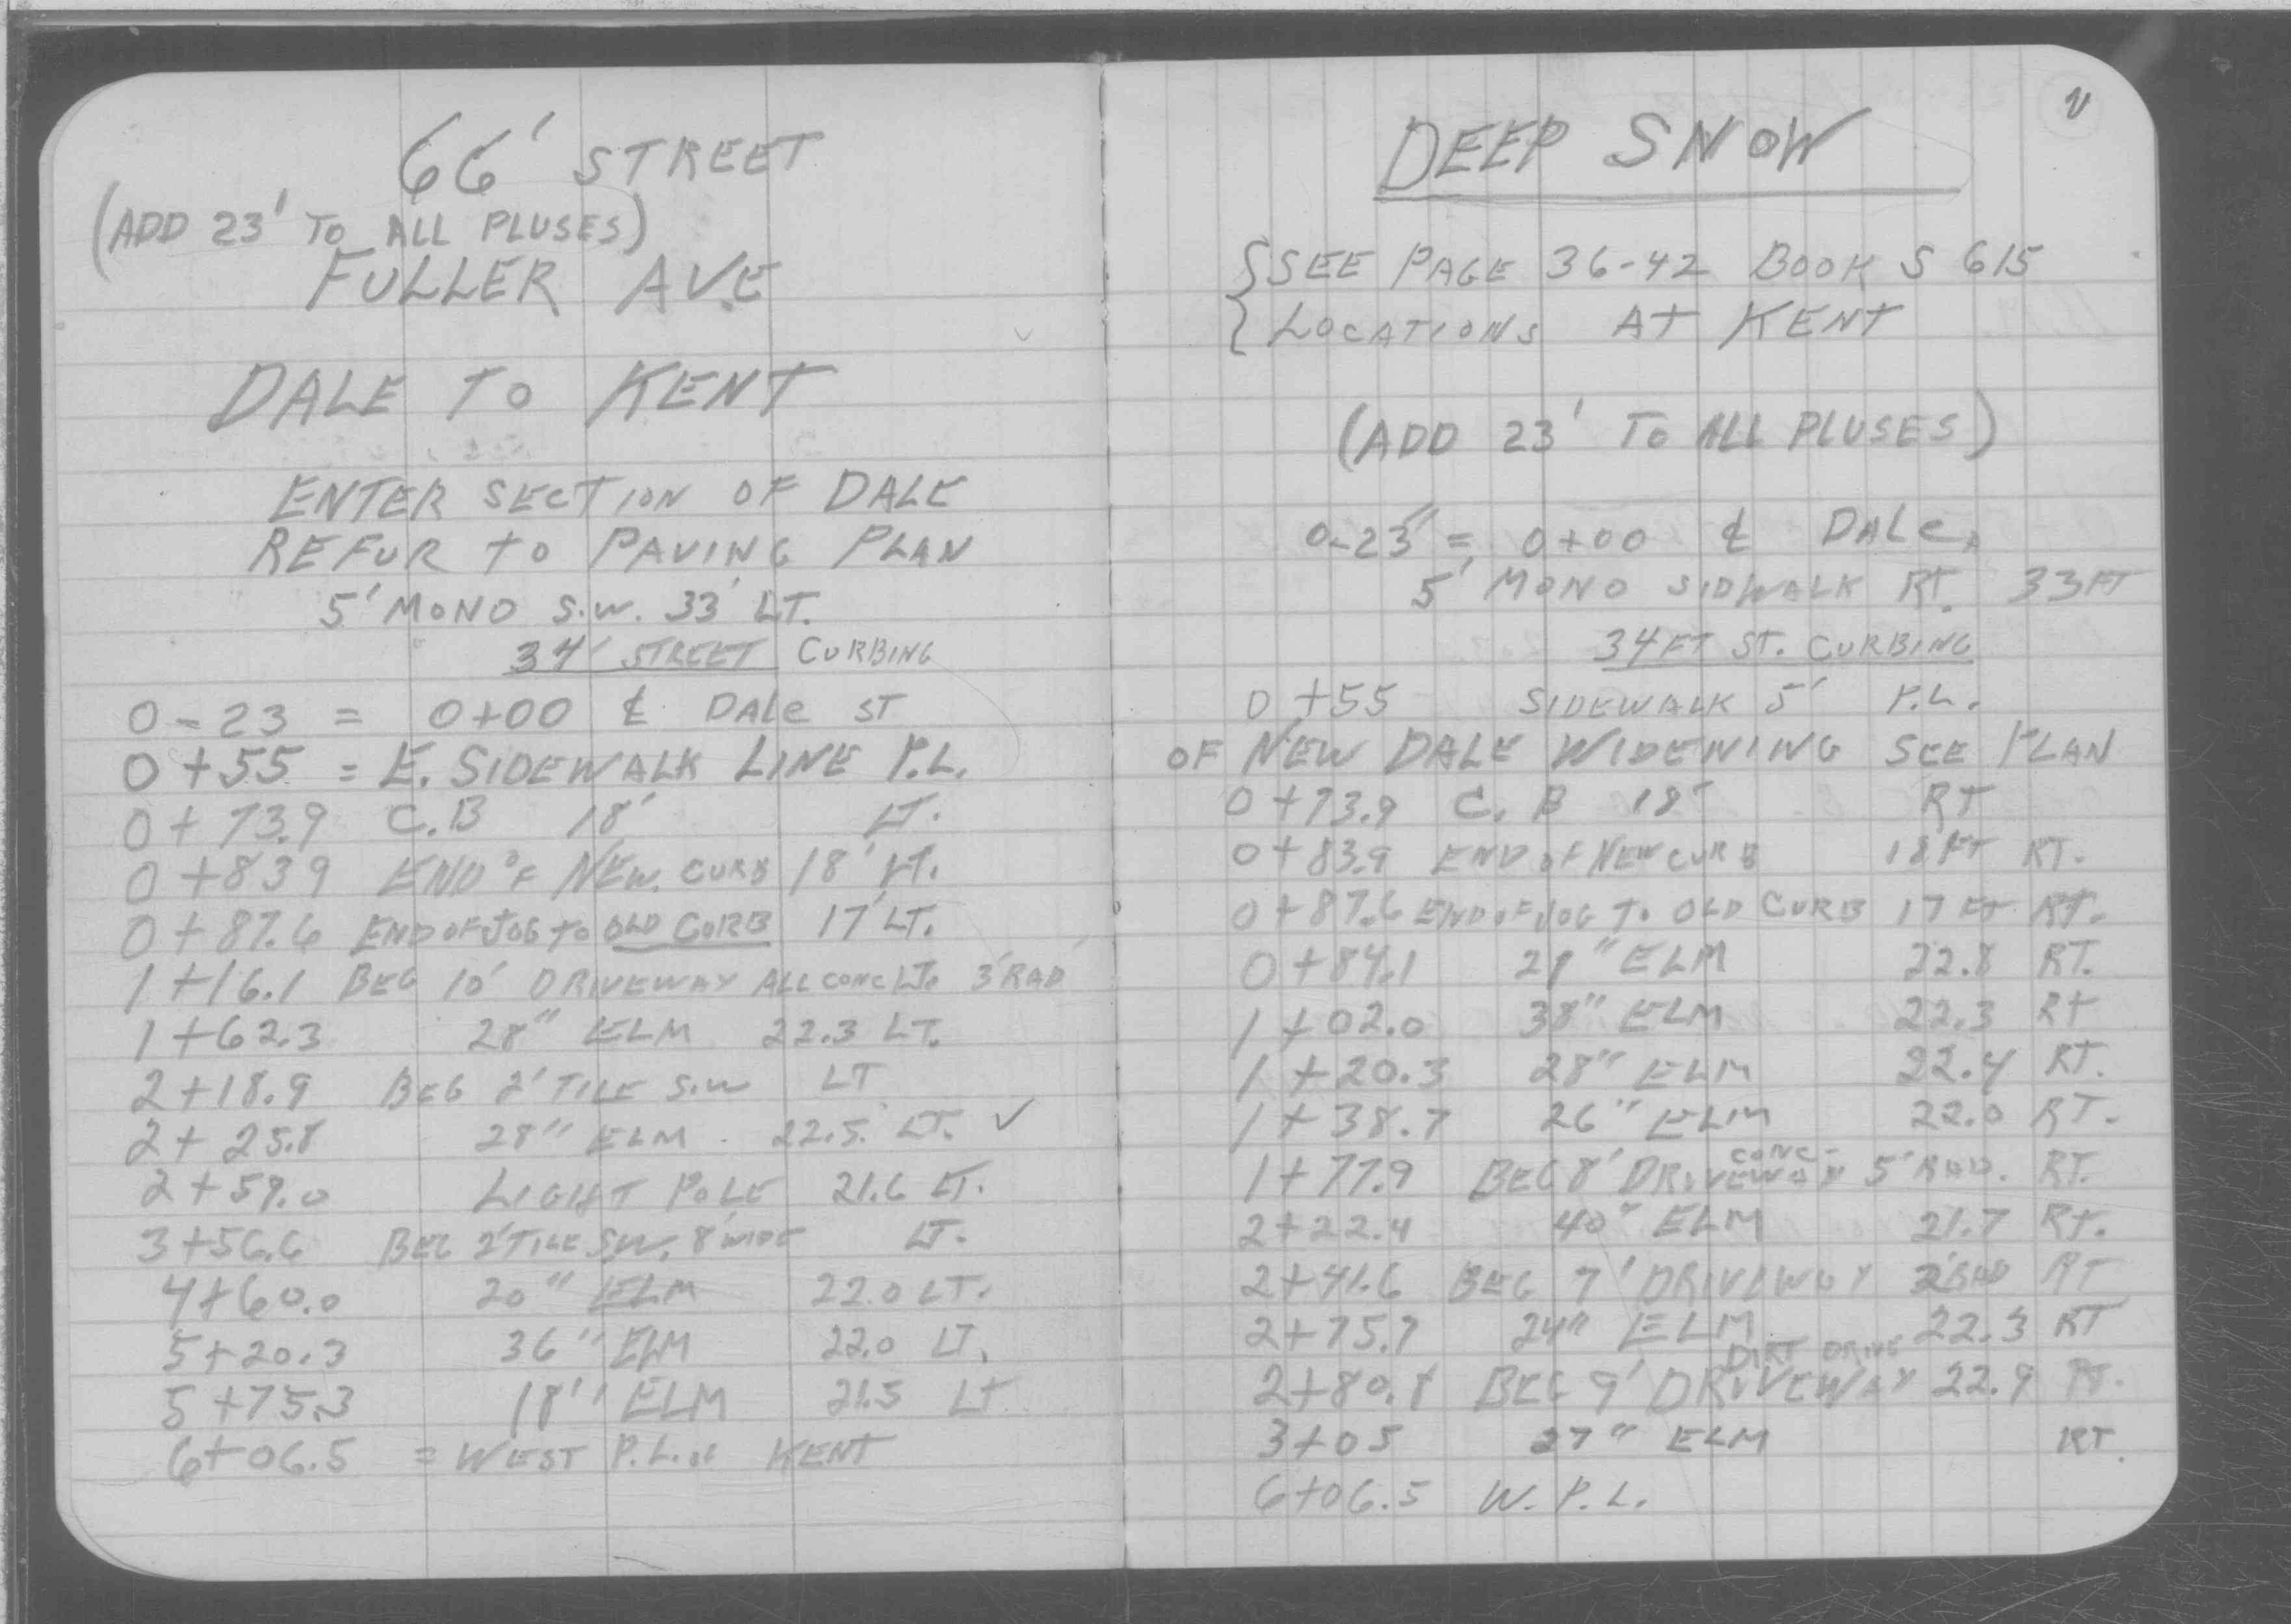 66' STREET
(ADD 23' TO ALL PLUSES)
FULLER AVE
DALE TO KENT
ENTER SECTION OF DALE
REFUR TO PAVING PLAN
5' MONO S.W. 33' LT.
34' STREET CURBING
0-23 = 0+00 ℄ DALE ST
0+55 = E. SIDEWALK LINE P.L.
0+73.9 C.B 18' LT.
0+83.9 END OF NEW CURB 18' LT.
0+87.6 END OF JOG TO OLD CURB 17' LT.
1+16.1 BEG 10' DRIVEWAY ALL CONC LT. 3' RAD
1+62.3 28" ELM 22.3 LT.
2+18.9 BEG 2' TILE S.W LT
2+25.8 28" ELM 22.5 LT. ✓
2+59.0 LIGHT POLE 21.6 LT.
3+56.6 BEG 2' TILE S.W. 8' WIDE LT.
4+60.0 20" ELM 22.0 LT.
5+20.3 36" ELM 22.0 LT.
5+75.3 18" ELM 21.5 LT
6+06.5 = WEST P.L. OF KENT
DEEP SNOW
{SEE PAGE 36-42 BOOK S 615
LOCATIONS AT KENT
(ADD 23' TO ALL PLUSES)
0-23" = 0+00 ℄ DALE.
5' MONO SIDWALK RT. 33FT
34FT ST. CURBING
0+55 SIDEWALK 5' P.L.
OF NEW DALE WIDENING SEE PLAN
0+73.9 C.B 18' RT
0+83.9 END OF NEW CURB 18 FT RT.
0+87.6 END OF JOG TO OLD CURB 17 FT RT.
0+84.1 ELM 22.8 RT.
1+02.0 38" ELM 22.3 RT
1+20.3 28" ELM 22.4 RT.
1+38.7 26" ELM 22.0 RT.
1+77.9 BEG 8' CONC. DRIVEWAY 5' RAD. RT.
2+22.4 40" ELM 21.7 RT.
2+41.6 BEG 7' DRIVEWAY RAD RT
2+75.7 24" ELM 22.3 RT
DIRT DRIVE
2+80.8 BEG 9' DRIVEWAY 22.9 RT.
3+05 27" ELM RT.
6+06.5 W.P.L.